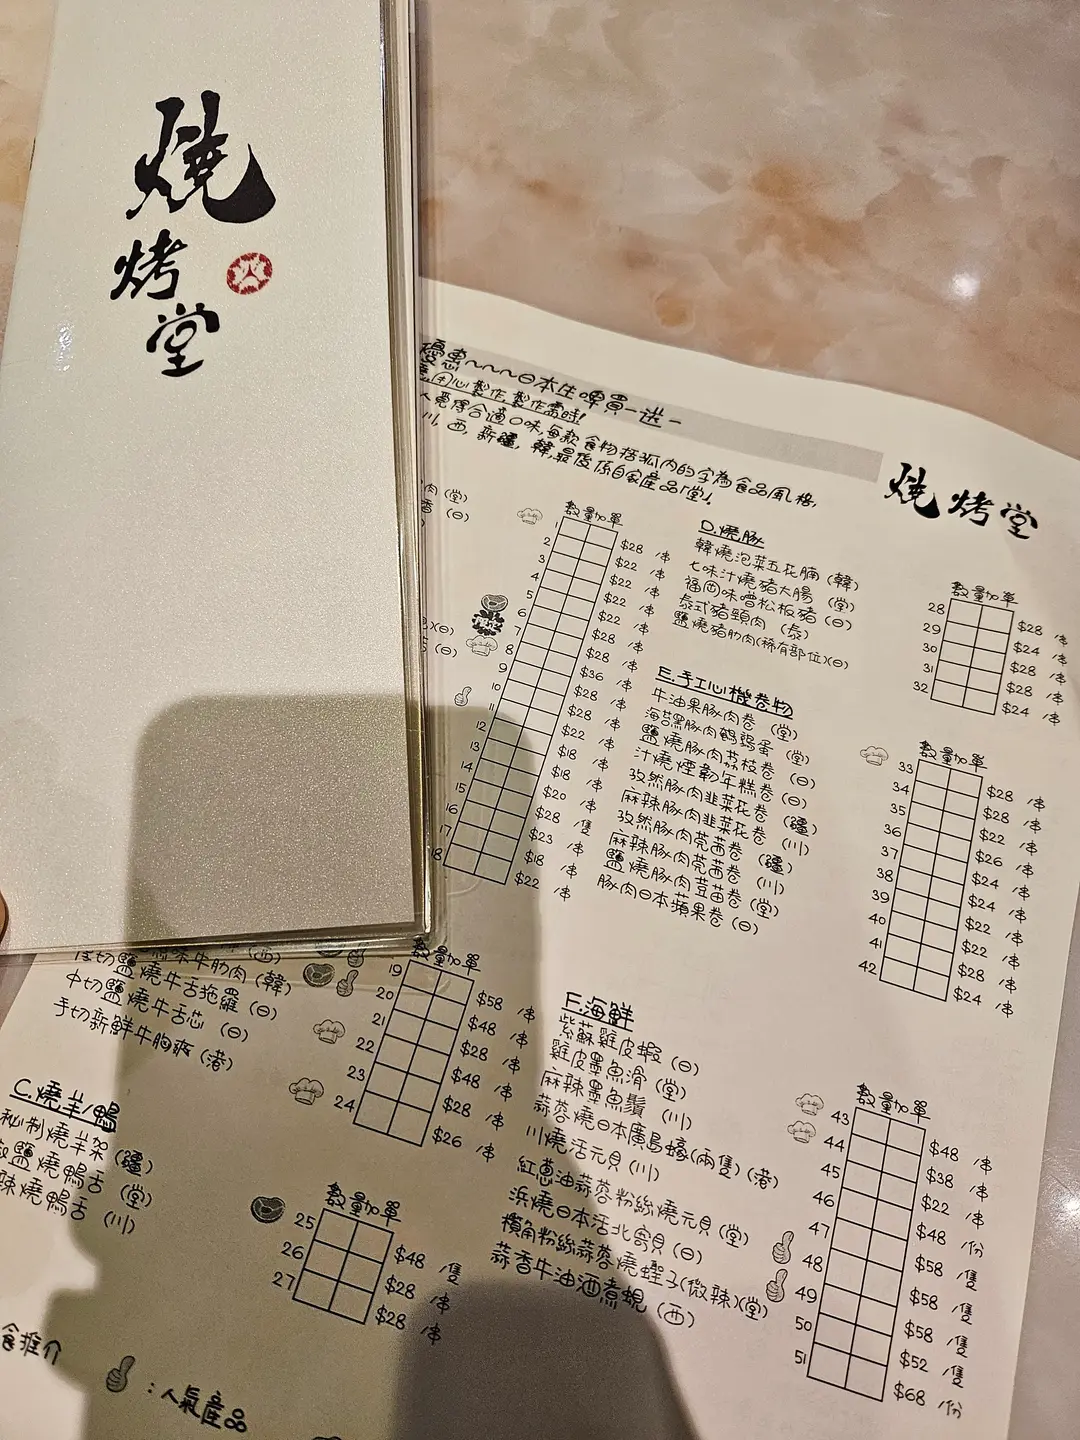 燒
烤
堂
優惠~~~日本生啤買一送一
用心製作,製作需時!
人覺得合適口味,每款食物括弧內的字為食品風格,
川,西,新疆,韓,最後係自家產品「堂」!
燒烤堂
肉(堂)
香(日)
(日)
(日)
數量加單
1 $28 /串
2 $22 /串
3 $22 /串
4 $22 /串
5 $22 /串
6 $28 /串
7 $28 /串
8 $36 /串
9 $28 /串
10 $28 /串
11 $22 /串
12 $18 /串
13 $18 /串
14 $20 /串
15 $28 /隻
16 $23 /串
17 $18 /串
18 $22 /串
味牛肋肉(韓)
鹽燒牛舌拖羅(日)
中切鹽燒牛舌芯(日)
手切新鮮牛胸爽(港)
數量加單
19 $58 /串
20 $48 /串
21 $28 /串
22 $48 /串
23 $28 /串
24 $26 /串
C.燒羊/鴨
秘制燒羊架(疆)
鹽燒鴨舌(堂)
辣燒鴨舌(川)
數量加單
25 $48 /隻
26 $28 /串
27 $28 /串
食推介
:人氣產品
D.燒豚
韓燒泡菜五花腩(韓)
七味汁燒豬大腸(堂)
福岡味噌松板豬(日)
泰式豬頸肉(泰)
鹽燒豬肋肉(稀有部位)(日)
數量加單
28 $28 /串
29 $24 /串
30 $28 /串
31 $28 /串
32 $24 /串
E.手工心機卷物
牛油果豚肉卷(堂)
海苔黑豚肉鵪鶉蛋(堂)
鹽燒豚肉荔枝卷(日)
汁燒煙韌年糕卷(日)
孜然豚肉韭菜花卷(疆)
麻辣豚肉韭菜花卷(川)
孜然豚肉芫茜卷(疆)
麻辣豚肉芫茜卷(川)
鹽燒豚肉荳苗卷(堂)
豚肉日本蘋果卷(日)
數量加單
33 $28 /串
34 $28 /串
35 $22 /串
36 $26 /串
37 $24 /串
38 $24 /串
39 $22 /串
40 $22 /串
41 $28 /串
42 $24 /串
F.海鮮
紫蘇雞皮蝦(日)
雞皮墨魚滑(堂)
麻辣墨魚鬚(川)
蒜蓉燒日本廣島蠔(兩隻)(港)
川燒活元貝(川)
紅蔥油蒜蓉粉絲燒元貝(堂)
浜燒日本活北寄貝(日)
欖角粉絲蒜蓉燒蟶子(微辣)(堂)
蒜香牛油酒煮蜆(西)
數量加單
43 $48 /串
44 $38 /串
45 $22 /串
46 $48 /份
47 $58 /隻
48 $58 /隻
49 $58 /隻
50 $52 /隻
51 $68 /份